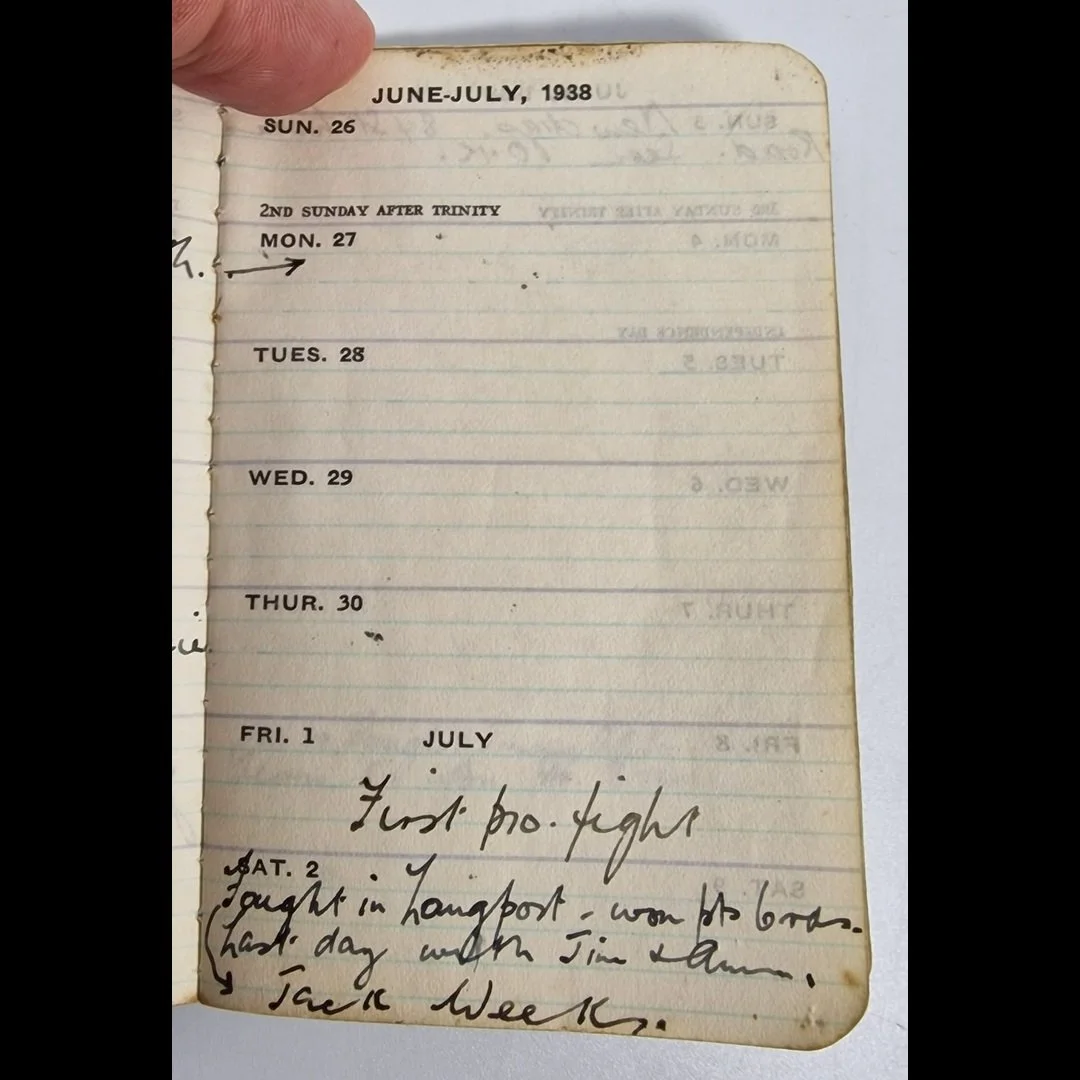 JUNE-JULY, 1938
SUN. 26
2ND SUNDAY AFTER TRINITY
MON. 27
TUES. 28
WED. 29
THUR. 30
FRI. 1 JULY
First pro. fight
SAT. 2
Fought in Langport - won pts 6 rds.
Last day with Jim &
Jack Weeks.